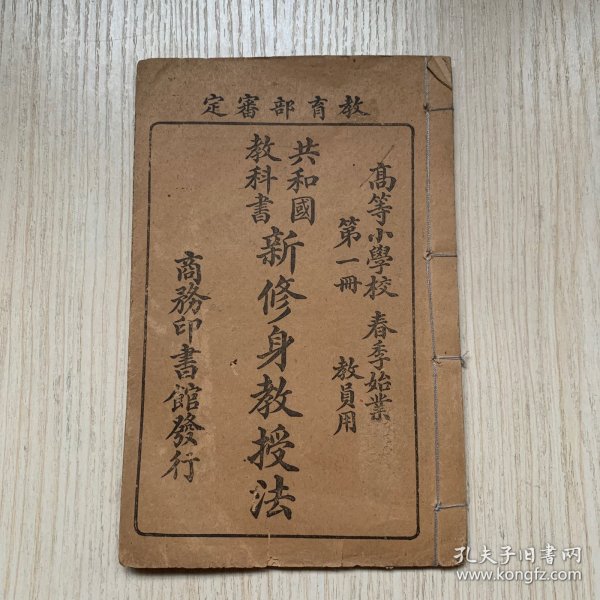 教育部審定
高等小學校 春季始業
第一冊 教員用
共和國
教科書
新修身教授法
商務印書館發行
孔夫子旧书网
www.kongfz.com